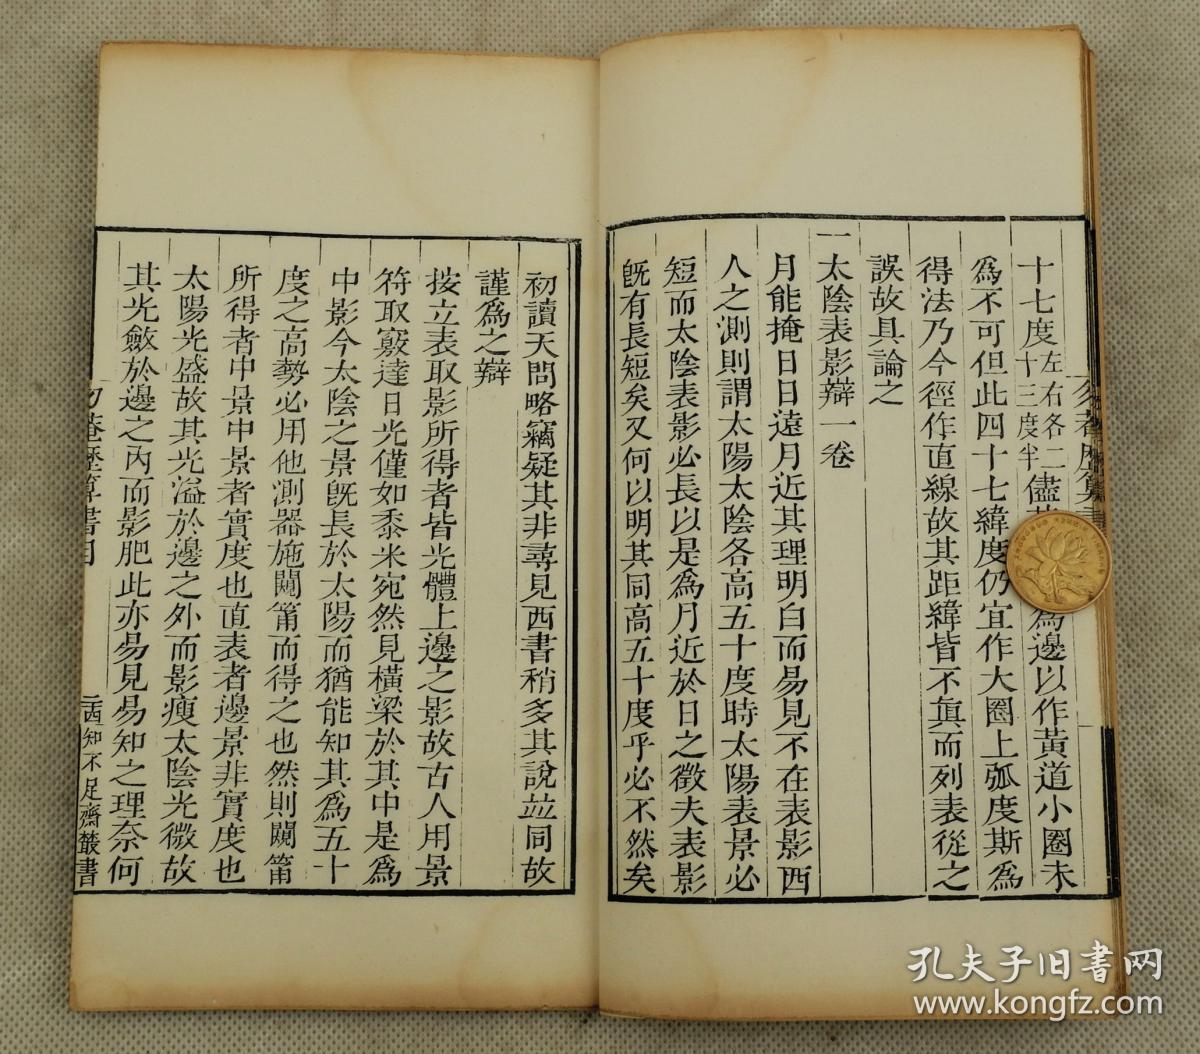 十七度左右各二十三度半儘
為邊以作黃道小圈未
為不可但此四十七緯度仍宜作大圈上弧度斯為
得法乃今徑作直線故其距緯皆不眞而列表從之
誤故具論之
一太陰表影辯一卷
月能掩日日遠月近其理明白而易見不在表影西
人之測則謂太陽太陰各高五十度時太陽表景必
短而太陰表影必長以是為月近於日之徵夫表影
旣有長短矣又何以明其同高五十度乎必不然矣
初讀天問略竊疑其非尋見西書稍多其說竝同故
謹爲之辯
按立表取影所得者皆光體上邊之影故古人用景
符取竅達日光僅如黍米宛然見橫梁於其中是爲
中影今太陰之景旣長於太陽而猶能知其爲五十
度之高勢必用他測器施闚筩而得之也然則闚筩
所得者中景中景者實度也直表者邊景非實度也
太陽光盛故其光溢於邊之外而影瘦太陰光微故
其光斂於邊之內而影肥此亦易見易知之理奈何
勿菴歷算書目
二酉知不足齋叢書
孔夫子旧書网
www.kongfz.com